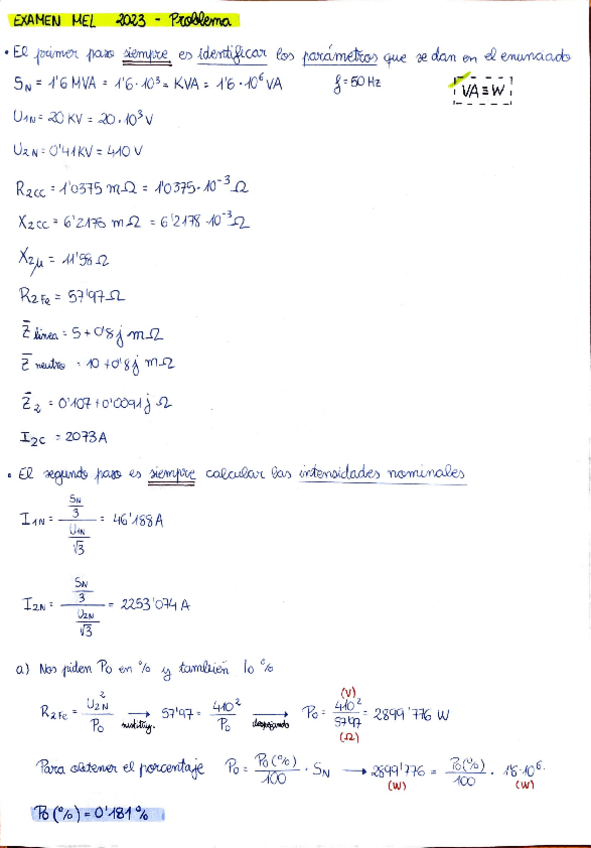 EXAMEN MEL 2023 - Problema
• El primer paso siempre es identificar los parámetros que se dan en el enunciado
SN = 1'6 MVA = 1'6·10³ = KVA = 1'6·10⁶ VA f = 50 Hz VA ≡ W
U1N = 20 KV = 20·10³ V
U2N = 0'41 KV = 410 V
R2cc = 1'0375 mΩ = 1'0375·10⁻³ Ω
X2cc = 6'2178 mΩ = 6'2178·10⁻³ Ω
X2μ = 11'98 Ω
R2Fe = 57'97 Ω
Z̄ linea = 5 + 0'8j mΩ
Z̄ neutro = 10 + 0'8j mΩ
Z̄2 = 0'107 + 0'0091j Ω
I2C = 2073 A
• El segundo paso es siempre calcular las intensidades nominales
I1N = (SN/3) / (U1N/√3) = 46'188 A
I2N = (SN/3) / (U2N/√3) = 2253'074 A
a) Nos piden Po en % y también Io %
R2Fe = U2N² / Po → sustituy. 57'97 = 410² / Po → despejando Po = 410² (V) / 57'97 (Ω) = 2899'776 W
Para obtener el porcentaje Po = Po(%)/100 · SN → 2899'776 (W) = Po(%)/100 · 1'6·10⁶ (W)
Po(%) = 0'181 %